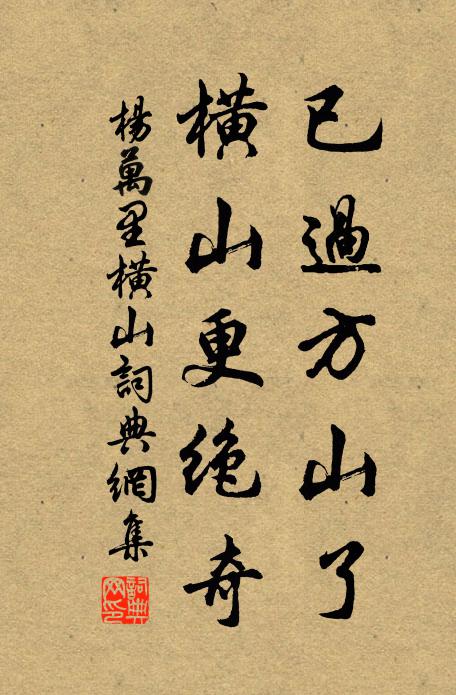 已過方山了
橫山更絶奇
楊萬里橫山詞典網集
詞典網印